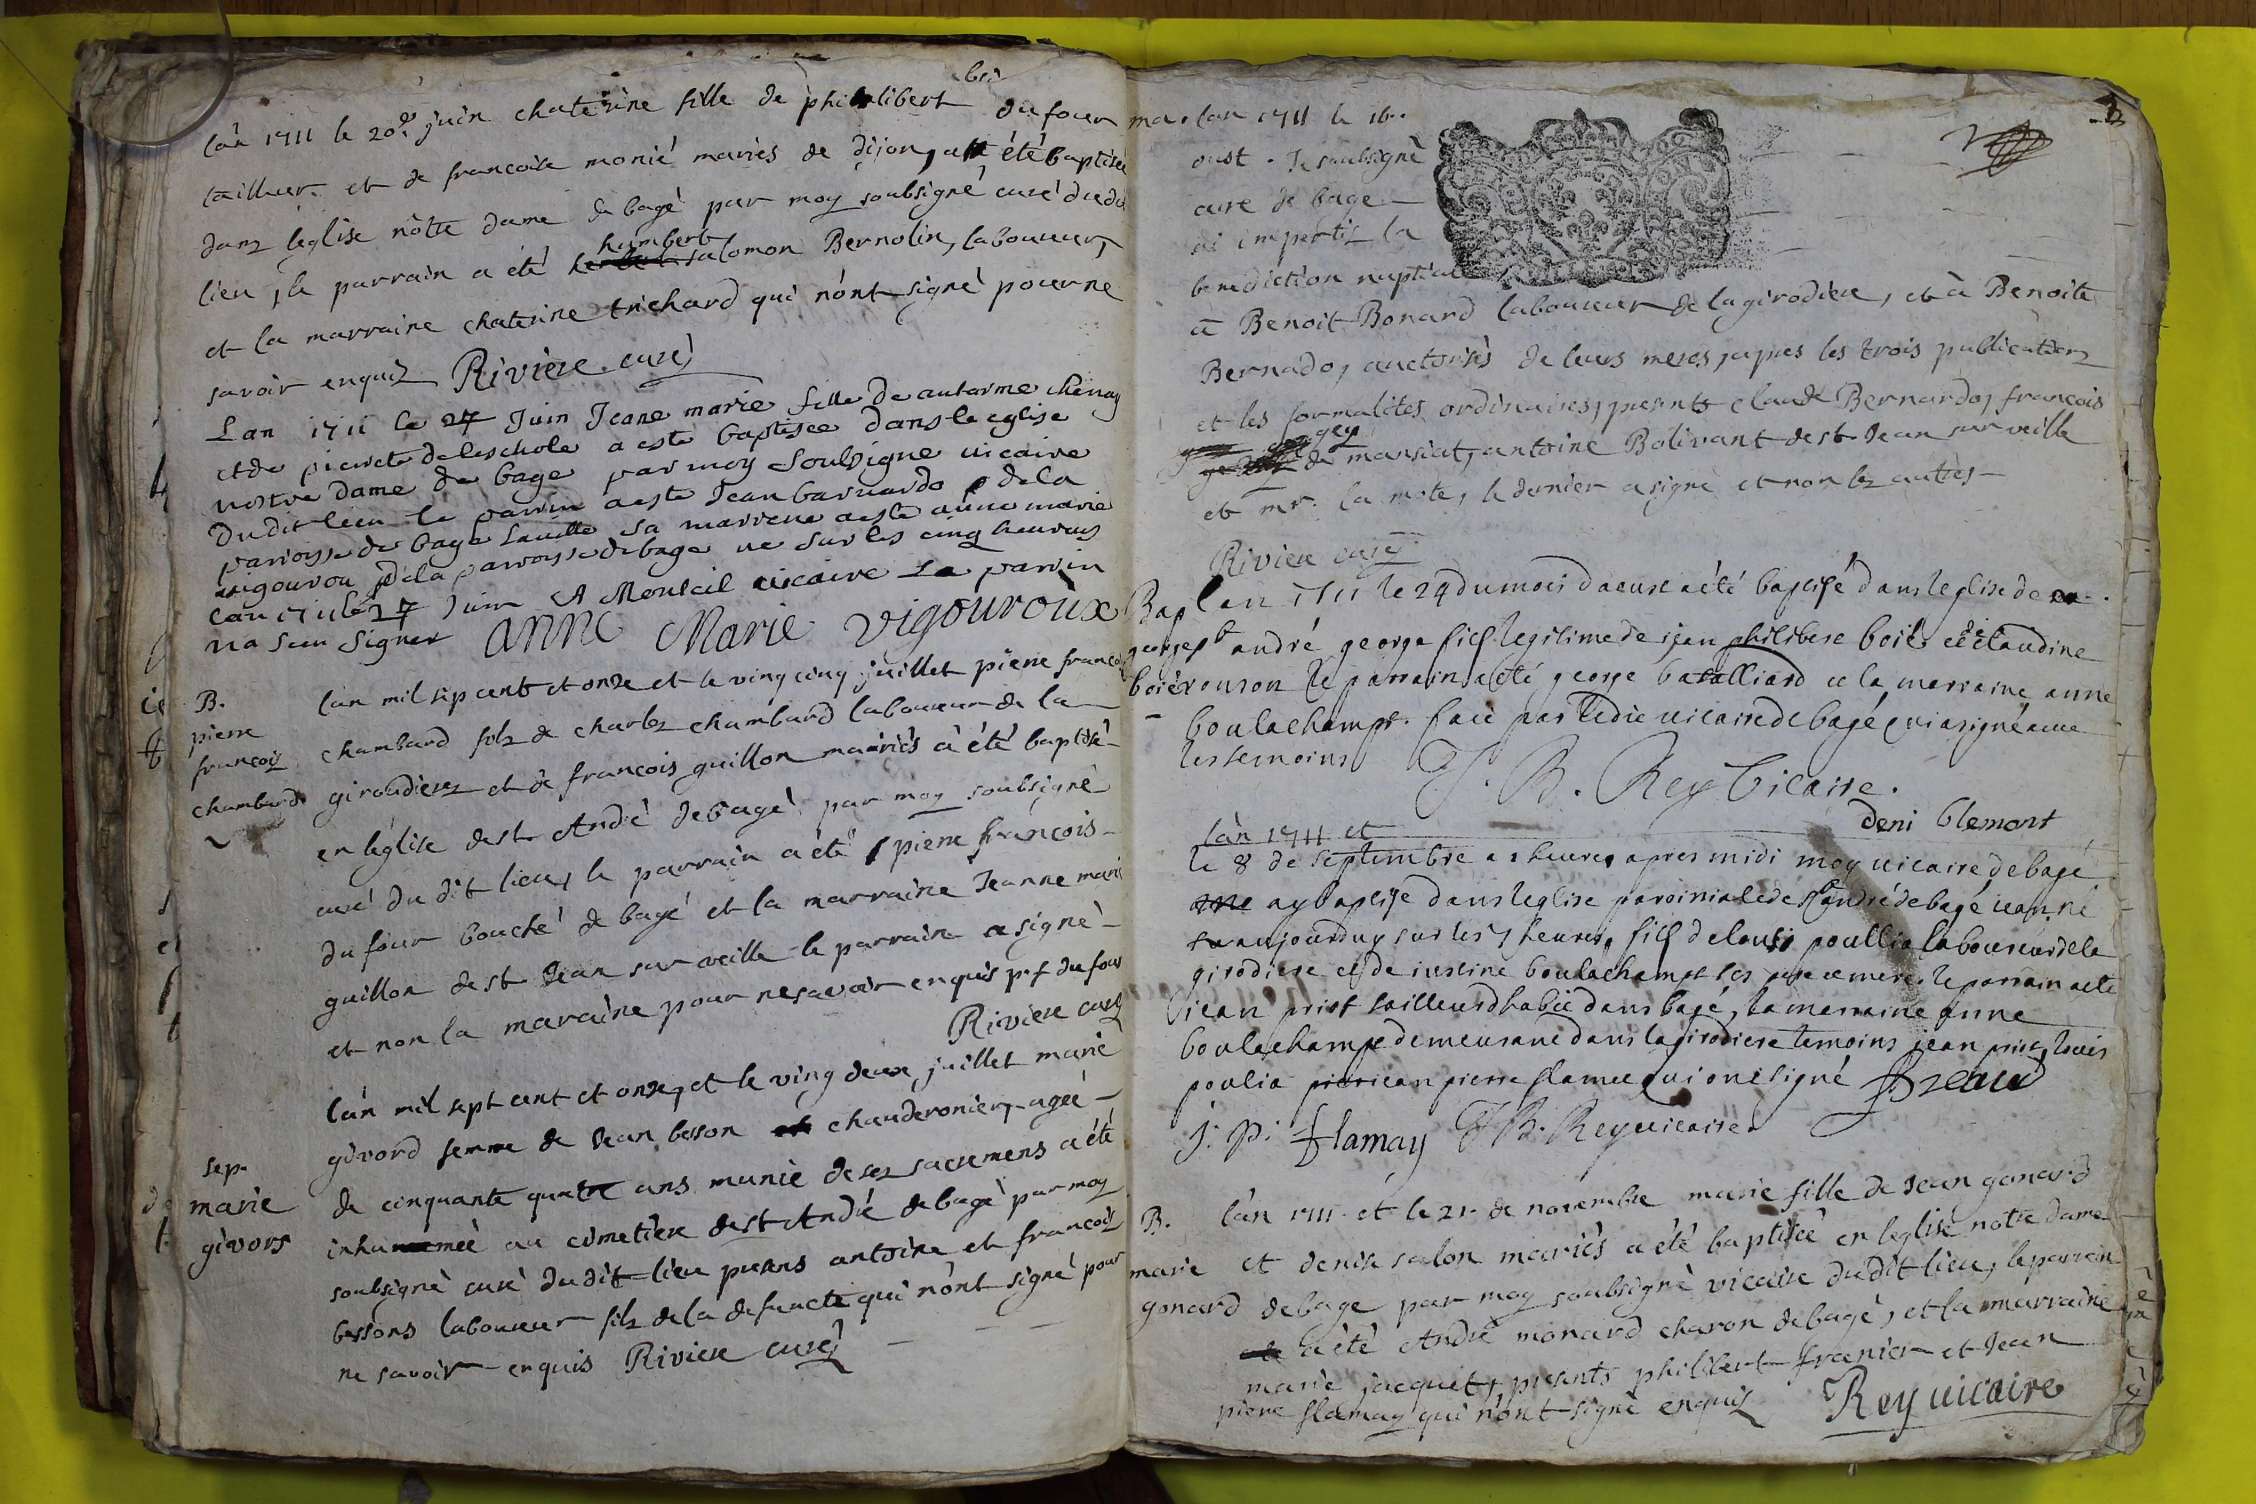 lân 1711 le 20e juin chaterine fille de philibert du four
tailleur et de francoise monié mariés de dijon, a été baptisée
dans léglise nôtre dame de bagé par moy soubsigné curé dudit
lieu, le parrain a été humbert salomon Bernolin, laboureur,
et la marraine chaterine trichard qui nónt signé pour ne
savoir enquis Riviere curé
Lan 1711 le 27 Juin Jeane marie fille de antoirme chenay
et de pierrete deleschole a este baptisee dans le eglise
nostre dame de bage par moy soubsigne vicaire
du dit lieu le parrin a este Jean barnardo de la
parroisse de bage laville sa marrene a este anne marie
vigourou de la parroisse de bage ne sur les cinq heures
lan 1711 le 27 Juin A Monteil vicaire Le parrin
na seu signer ANNE Marie VIGOUROUX
B.
pierre
francois
chambard
lan mil sept cents et onze et le ving cinq juillet pierre francois
chambard fils de charles chambard laboureur de la
giroudieres et de francois guillon mariés a été baptisé
en léglise de st André de bagé par moy soubsigné
curé du dit lieu, le parrain a été pierre francois
du four bouché de bagé et la marraine Jeanne marie
guillon de st Jean sur veille le parrain a signé
et non la maraine pour ne savoir enquis p f du four
Riviere curé
sep.
marie
givors
lán mil sept cent et onze, et le ving deux juillet marie
givord femme de Jean besson chauderonier, agée
de cinquante quatre ans munie de ses sacremens a été
inhumeé au cimetiere de st André de bagé par moy
soubsigné curé du dit lieu presens antoine et francois
bessons laboureur fils de la defuncte qui nónt signé pour
ne savoir enquis Riviere curé
ma. lan 1711 le 16
oust. Je soubsigné
curé de bage
ai impertis la
benediction nuptial
a Benoit Bonard laboureur de la girodiere, et à Benoite
Bernado, auctorisés de leurs meres, apres les trois publications
et les formalites ordinaires, presents claude Bernardo, francois
gogey de mansiat, antoine Bolivant de st Jean sur veille
et mr. la mote, le dernier a signé et non les autres
Riviere curé
Bap lan 1711 le 24 du mois d aoust a été baptisé dans leglise de
st andré george fils legitime de jean philibert boié et de claudine
george
boié
vouson le parrain a été george batalliard et la marraine anne
boulachamp. fait par ledit vicaire de bagé qui a signé avec
les temoins J. B. Rey Vicaire.
deni Clemant
lân 1711 et
le 8 de septembre a 2 heures apres midi moy vicaire de bagé
ay baptise dans leglise paroissiale de st andré de bagé jean, né
aujourduy sur les 7 heures, fils de louis poullia laboureur de la
girodiere et de justine boulachampt ses pere et mere. le parrain a été
jean prist tailleur d habit dans bagé, la marraine anne
boulachamp demeurant dans la girodiere temoins jean prist, louis
poulia jean pierre flamet qui ont signé Breaud
j. p. flamay J B. Rey vicaire
B.
marie
gonard
lân 1711 et le 21 de novembre marie fille de Jean gonard
et denise salon mariés a été baptiseé en leglise notre dame
de bage par moy soubsigné vicaire du dit lieu, le parrain
a été André monard charon de bagé, et la marraine
marie jacquet, presents philibert franier et Jean
pierre flamay qui nónt signé enquis Rey vicaire